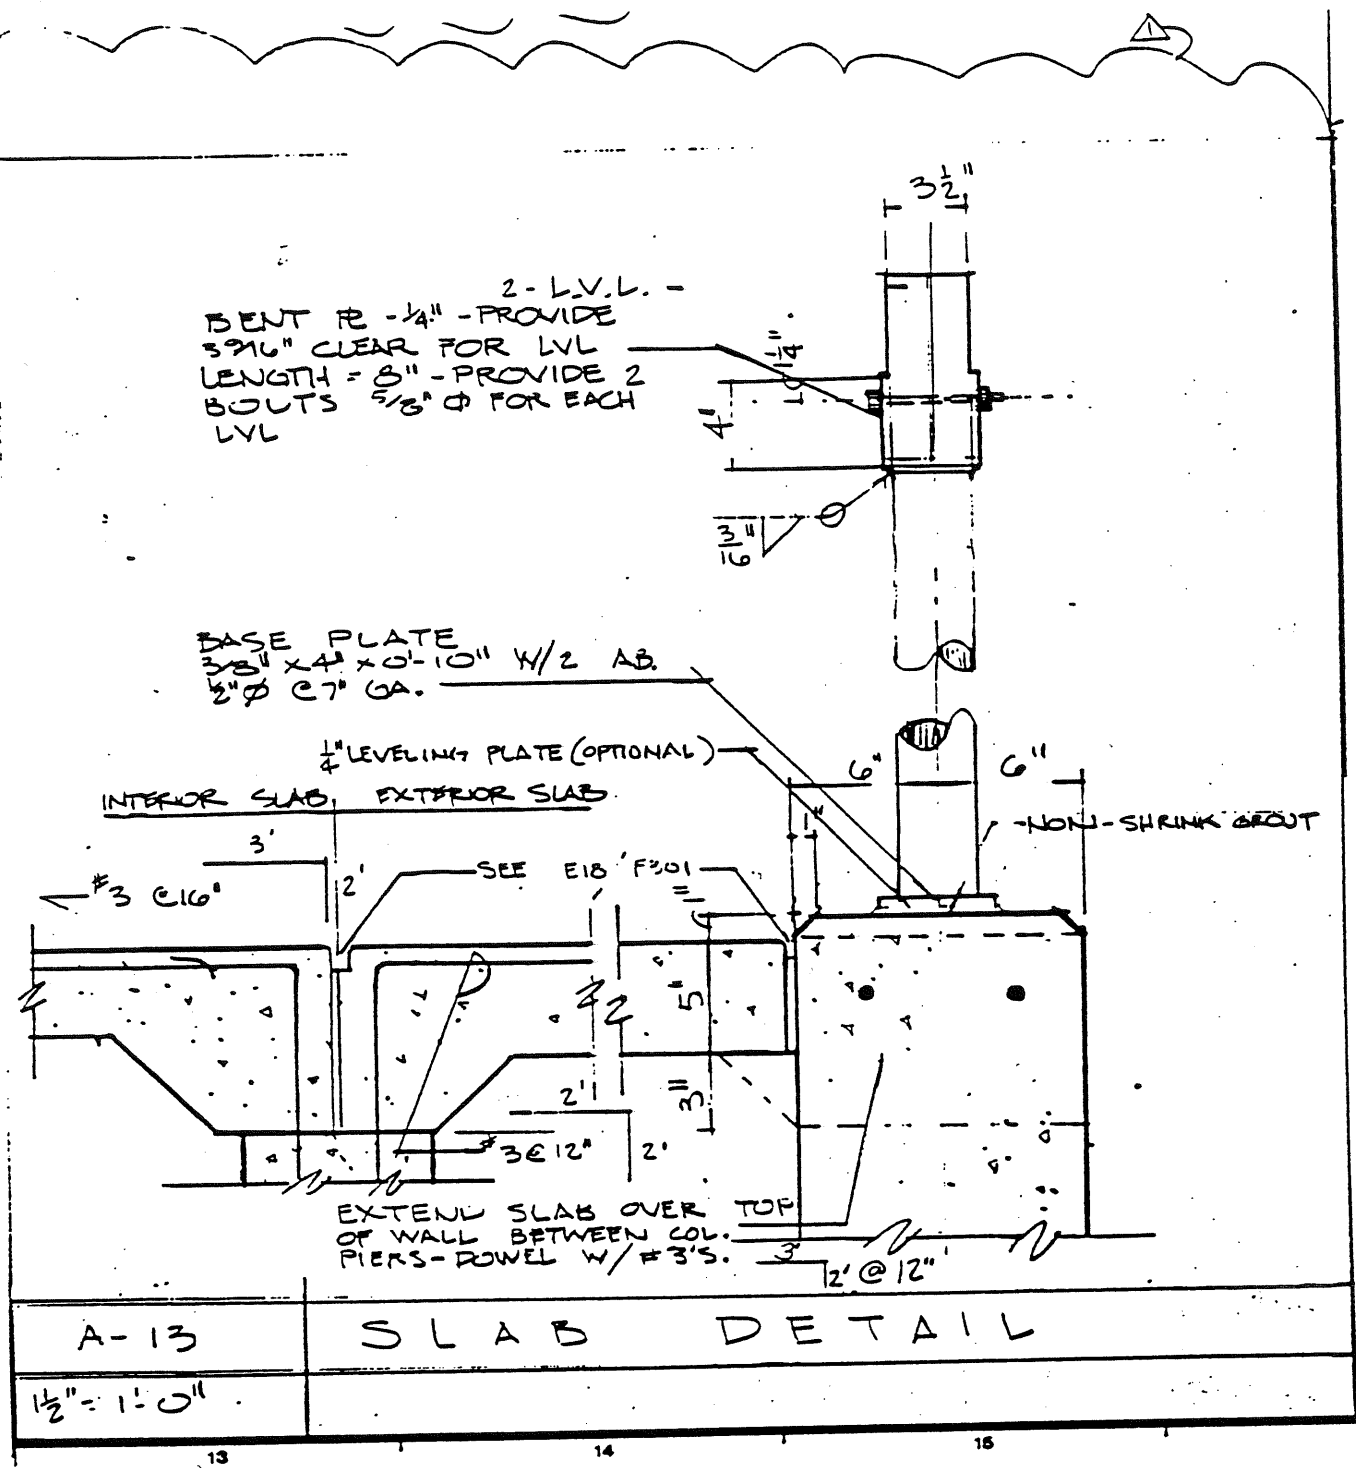 1
3 1/2"
2 - L.V.L. -
BENT PL - 1/4" - PROVIDE
3 9/16" CLEAR FOR LVL
LENGTH = 8" - PROVIDE 2
BOLTS 5/8" Φ FOR EACH
LVL
1 1/4"
4"
3/16"
BASE PLATE
3/8" x 4" x 0'-10" W/2 AB.
1/2" Ø @ 7" GA.
1/4" LEVELING PLATE (OPTIONAL)
6" 6"
INTERIOR SLAB EXTERIOR SLAB
1"
-NON-SHRINK GROUT
3'
2'
SEE E18 F301
#3 @ 16"
1"
5"
3"
2'
2'
#3 @ 12"
EXTEND SLAB OVER TOP
OF WALL BETWEEN COL.
PIERS - DOWEL W/ #3'S.
3'
2' @ 12"
A-13 SLAB DETAIL
1 1/2" = 1'-0"
13 14 15